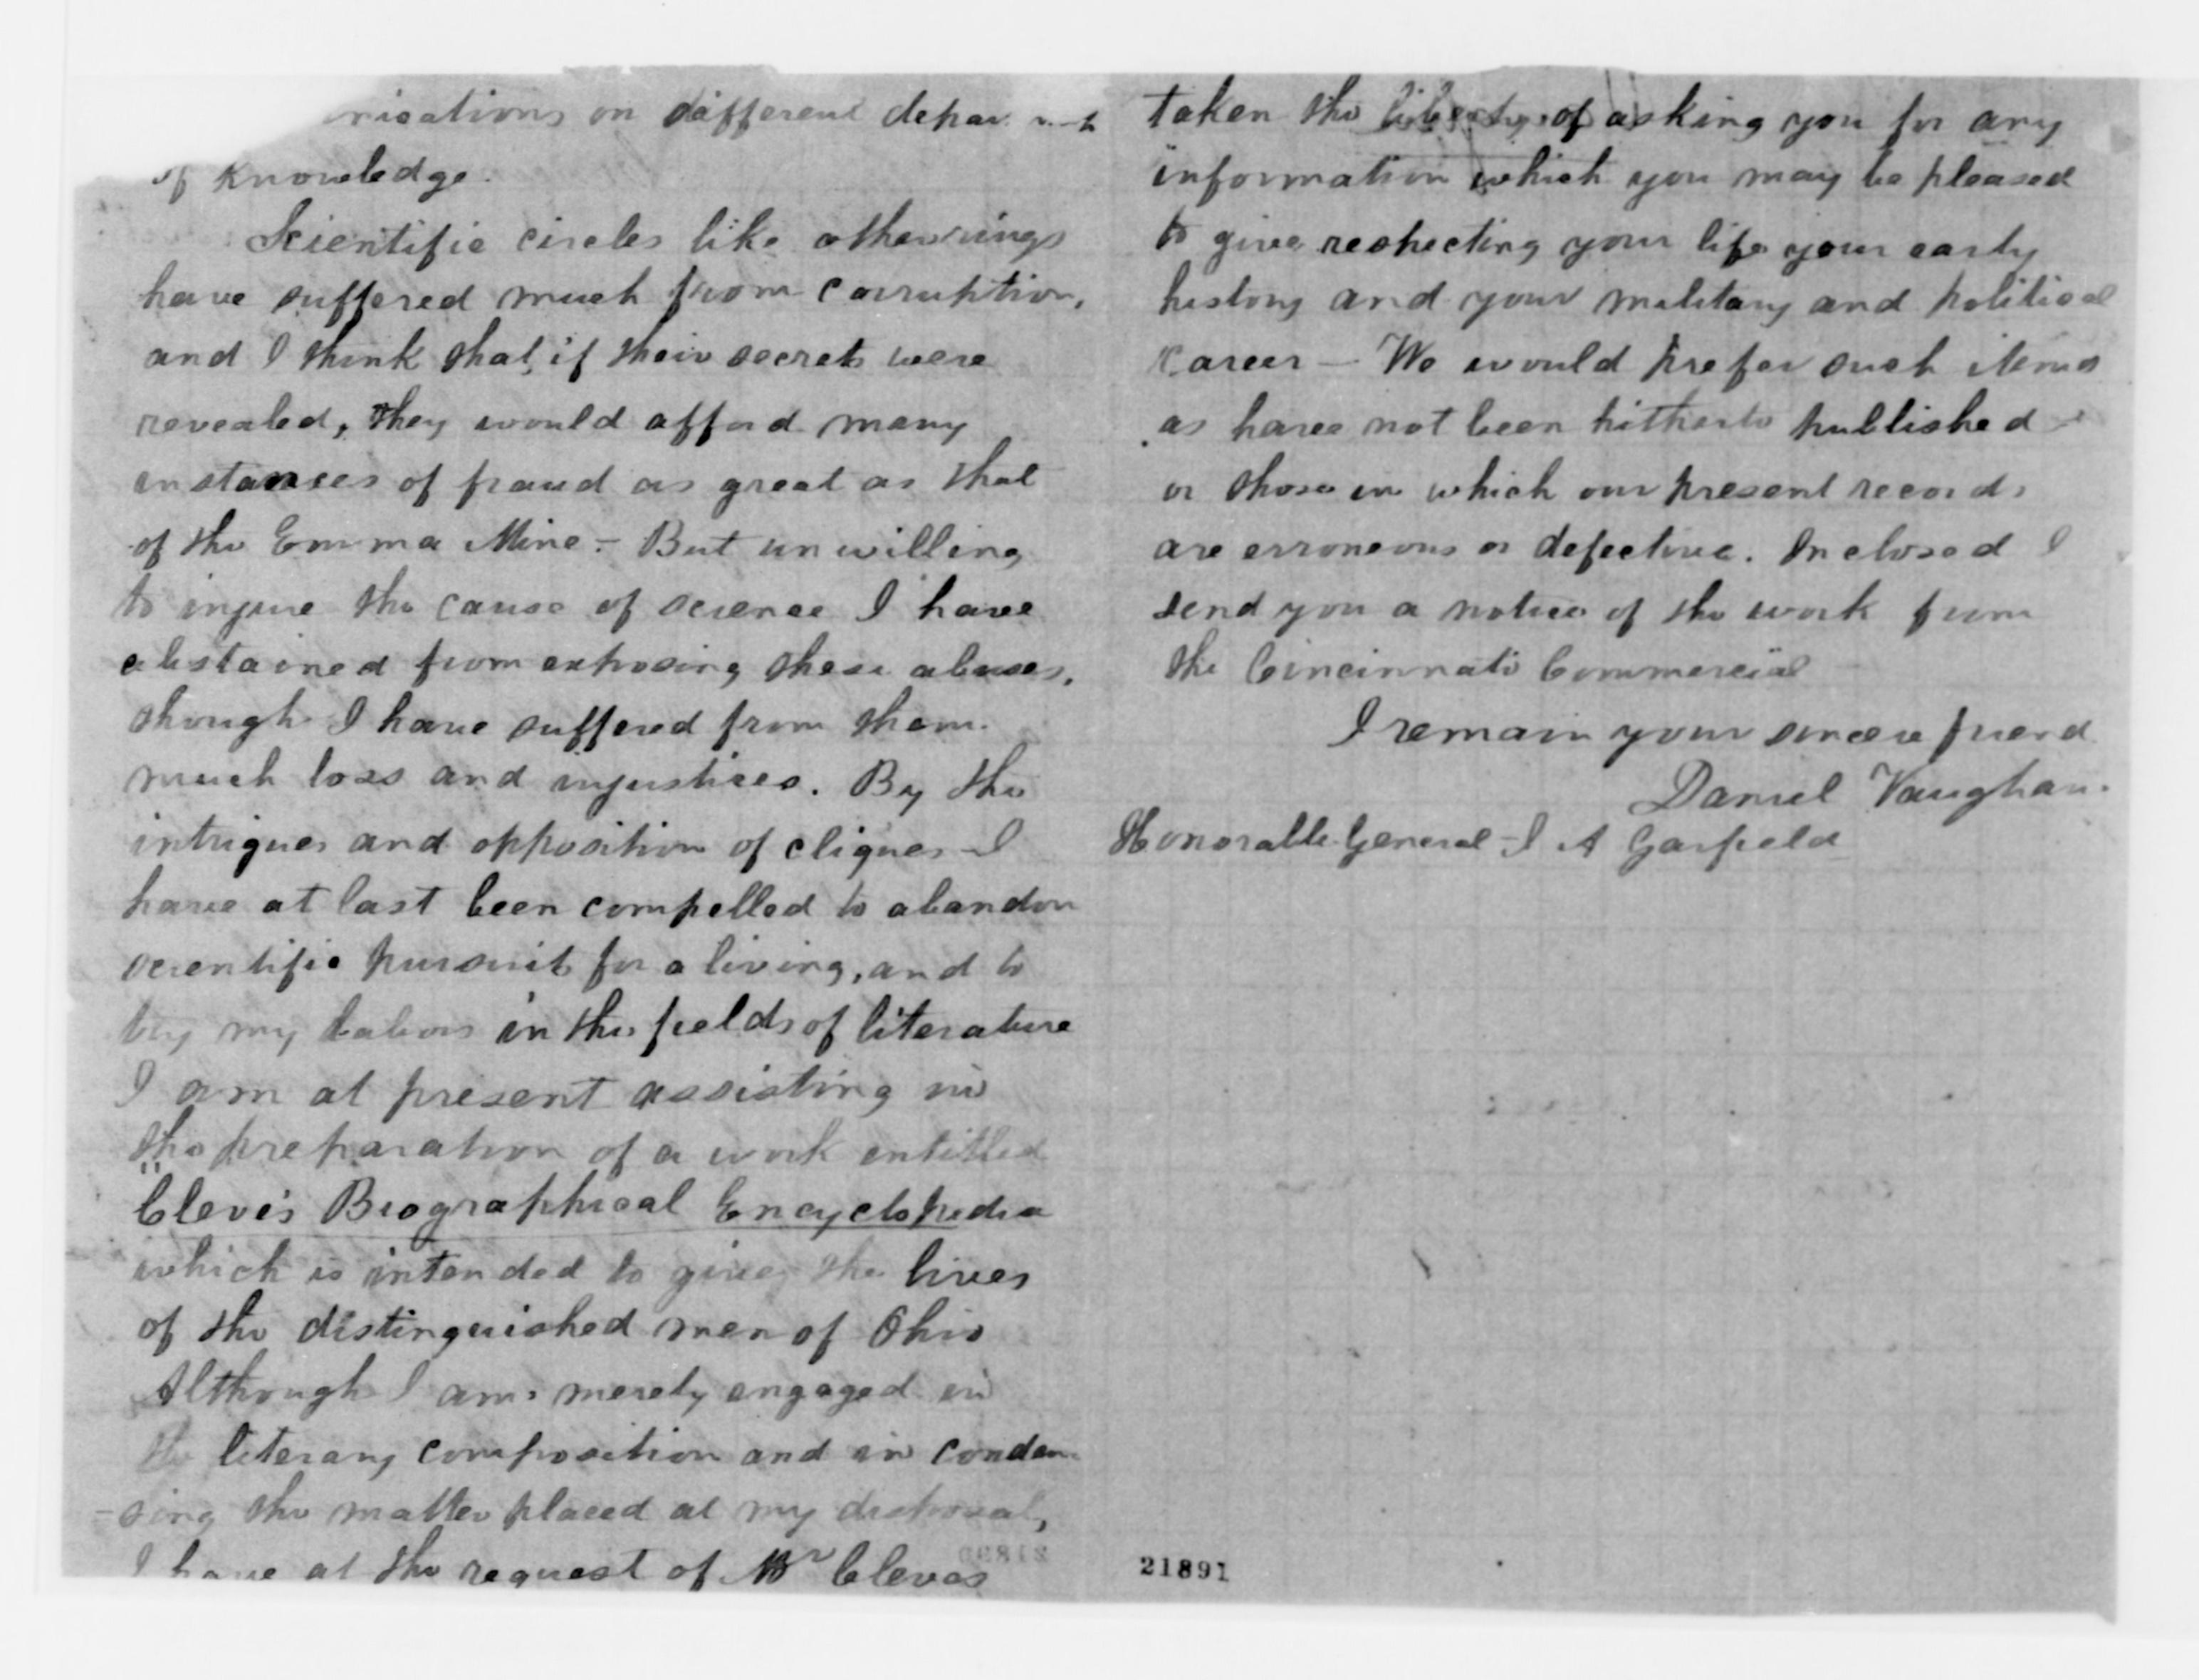 on different
of knowledge.
Scientific circles like other rings
have suffered much from corruption,
and I think that, if their secrets were
revealed, they would afford many
instances of fraud as great as that
of the Emma Mine - But unwilling
to injure the cause of science I have
abstained from exposing these abuses,
though I have suffered from them
much loss and injustices. By the
intrigues and opposition of cliques I
have at last been compelled to abandon
scientific pursuits for a living, and to
try my labors in the fields of literature
I am at present assisting in
the preparation of a work entitled
"Cleve's Biographical Encyclopedia
which is intended to give the lives
of the distinguished men of Ohio
Although I am merely engaged in
the literary composition and in conden
-sing the matter placed at my disposal,
I have at the request of Mr Cleves
taken the liberty of asking you for any
information which you may be pleased
to give respecting your life your early
history and your military and political
career - We would prefer such items
as have not been hitherto published
or those in which our present records
are erroneous or defective. Inclosed I
send you a notice of the work from
the Cincinnati Commercial
I remain your sincere friend
Daniel Vaughan.
Honorable General J A Garfield
21891